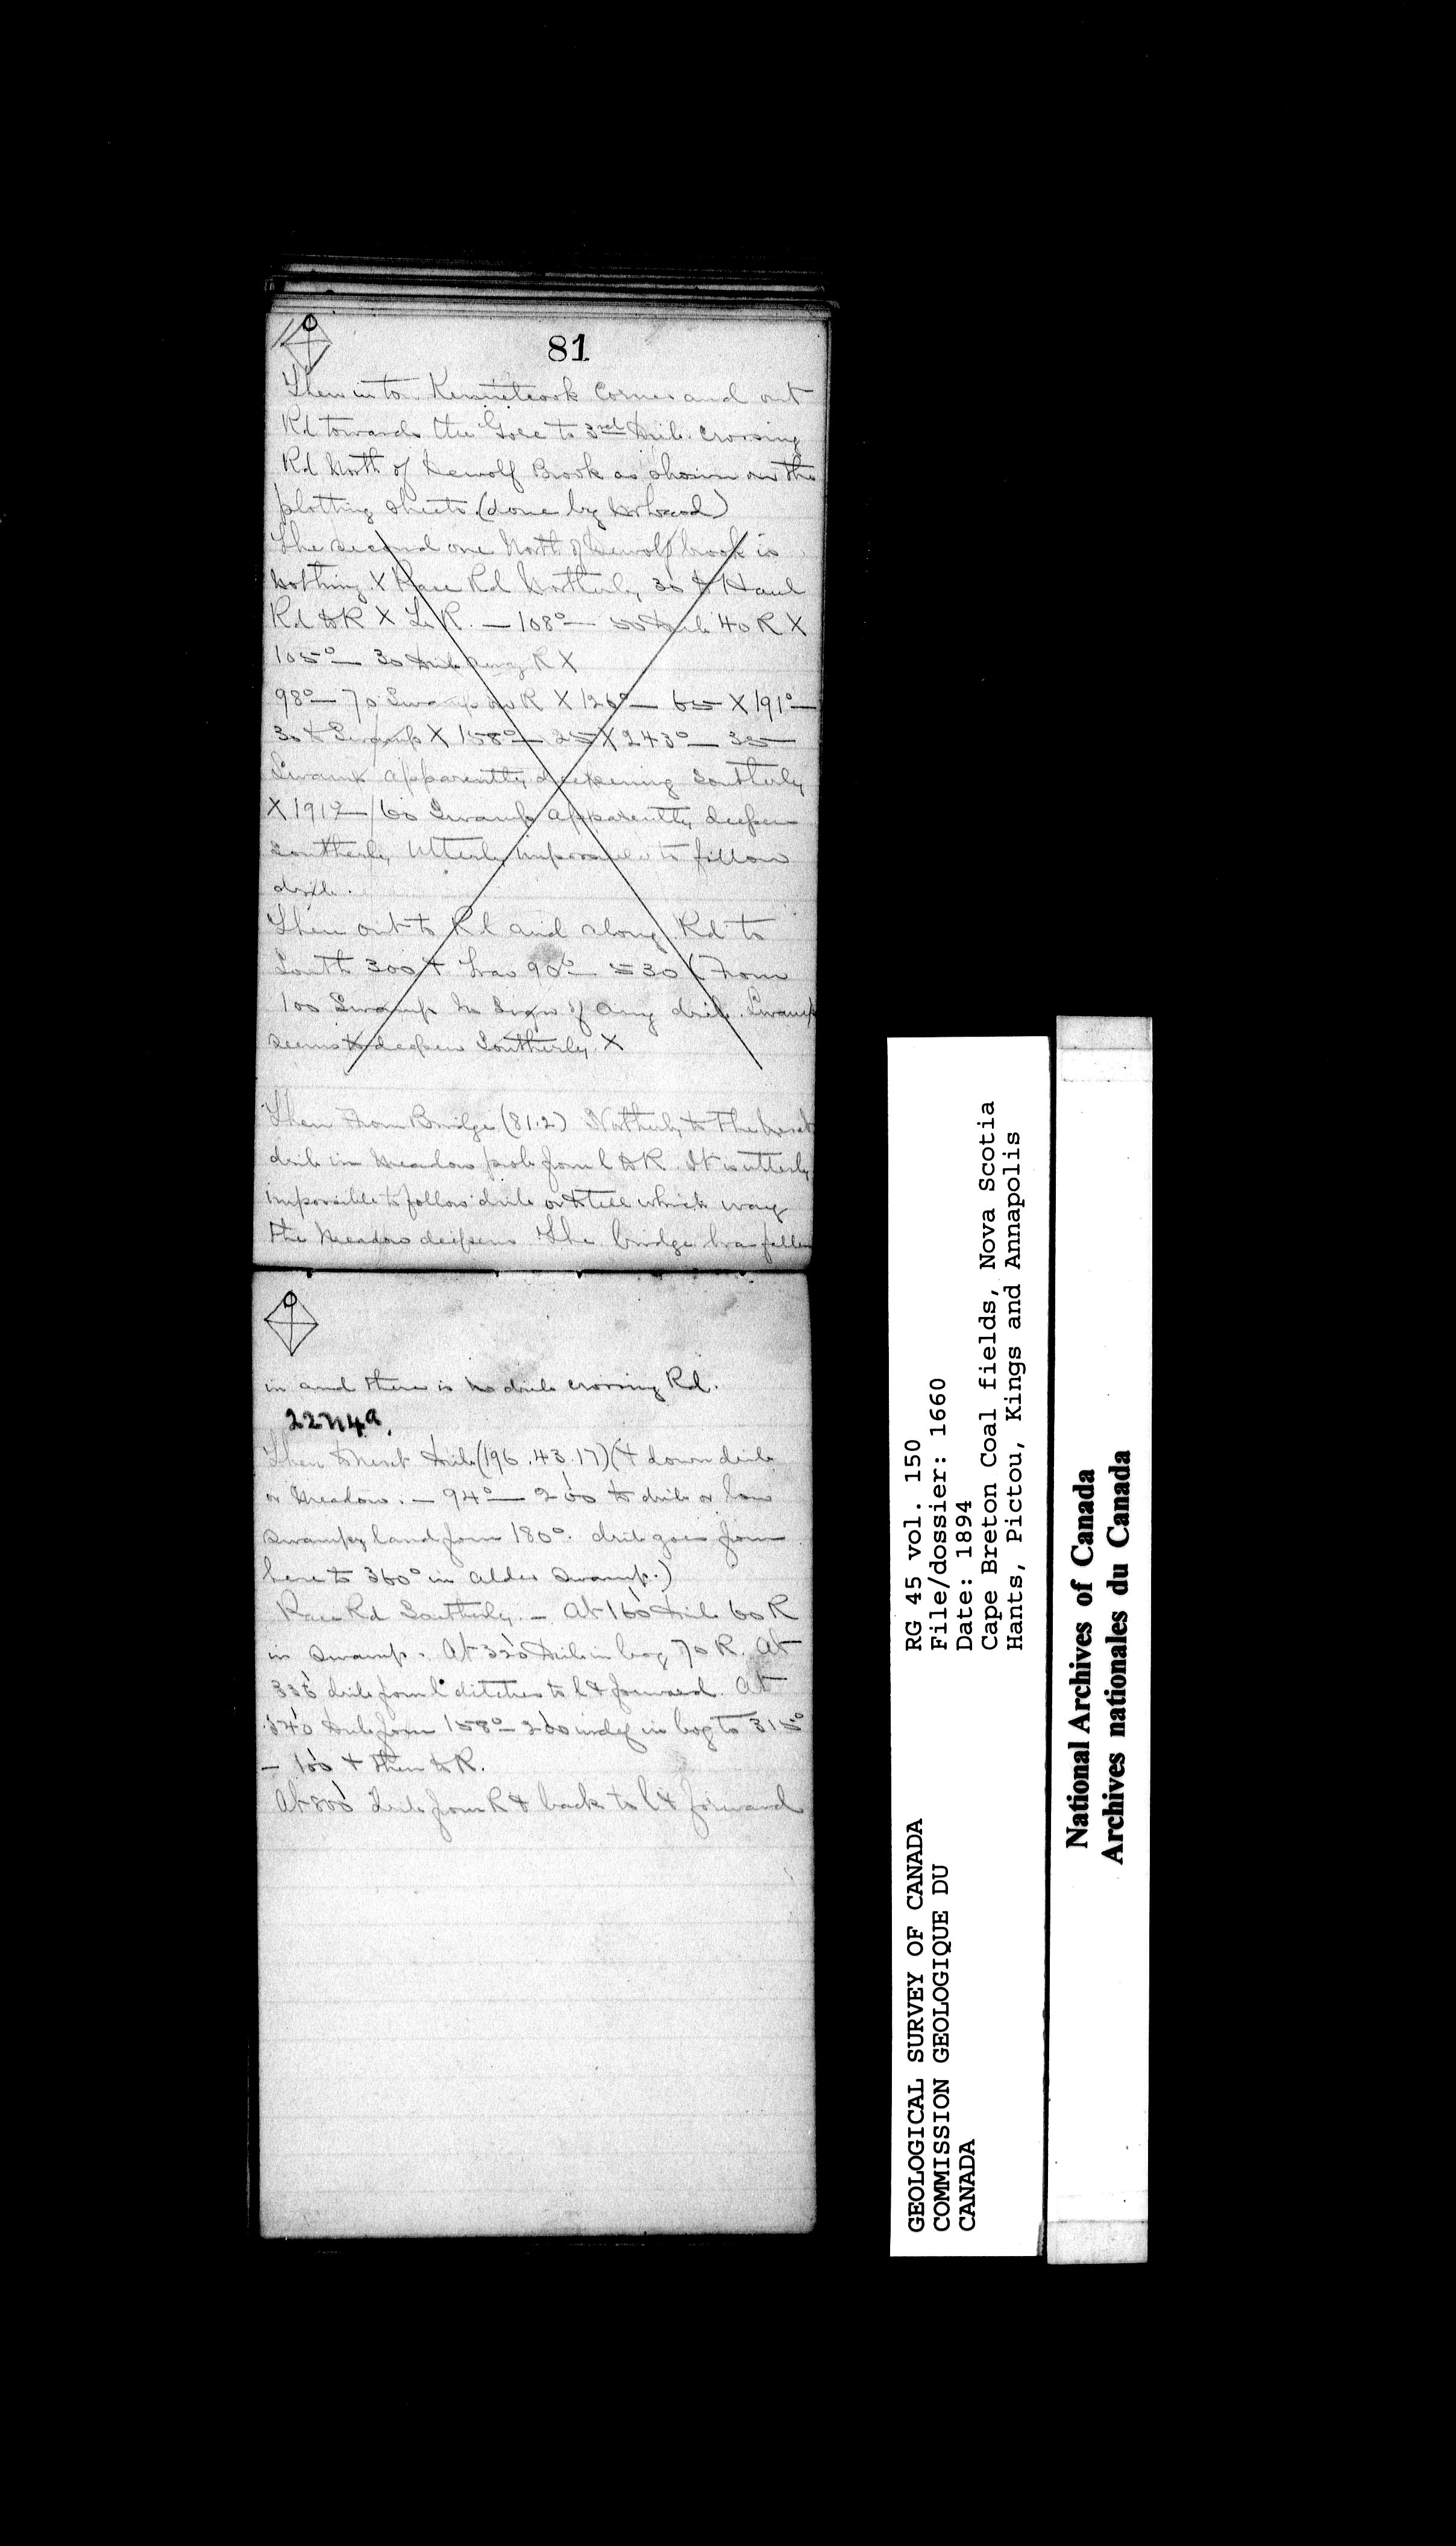 81
Then in to Kennetcook Corner and out
Rd towards the Gore to 3rd drib. crossing
Rd North of Dewolf Brook as shown on the
plotting sheets. (done by
The second one North of Dewolf brook is
Nothing. X Pace Rd Northerly 30 to Haul
Rd to R X R. — 108° — 50 drib 40 R X
105° — 30 drib R X
98° — 70 Swamp on R X 126° — 65 X 191° —
30 to Swamp X 158° — 25 X 243° — 35 —
Swamp apparently deepening Southerly
X 191° — 60 Swamp apparently deepens
Southerly Utterly impossible to follow
drib.
Then out to Rd and along Rd to
South 300 + 90° — 530 (From
100 Swamp No Sign of any drib. Swamp
seems to deepen Southerly. X
Then From Bridge (81.2) Northerly to The next
drib in Meadow prob from l to R. It is utterly
impossible to follow drib or to tell which way
the Meadow deepens The bridge has fallen
in and there is no drib crossing Rd.
22N4a.
Then to next drib (196.43.17) (+ down drib
or Meadow. — 94° — 200 to drib or low
swampy land from 180°. drib goes from
here to 360° in alder swamp.)
Pace Rd Southerly. — At 160 drib 60 R
in swamp. At 320 drib in bog 70 R. At
335 drib from l ditches to l & forward. At
540 drib from 158° — 200 indef in bog to 315°
— 100 + then to R.
At 800 drib from R & back to l & forward
GEOLOGICAL SURVEY OF CANADA
COMMISSION GEOLOGIQUE DU
CANADA
RG 45 vol. 150
File/dossier: 1660
Date: 1894
Cape Breton Coal fields, Nova Scotia
Hants, Pictou, Kings and Annapolis
National Archives of Canada
Archives nationales du Canada